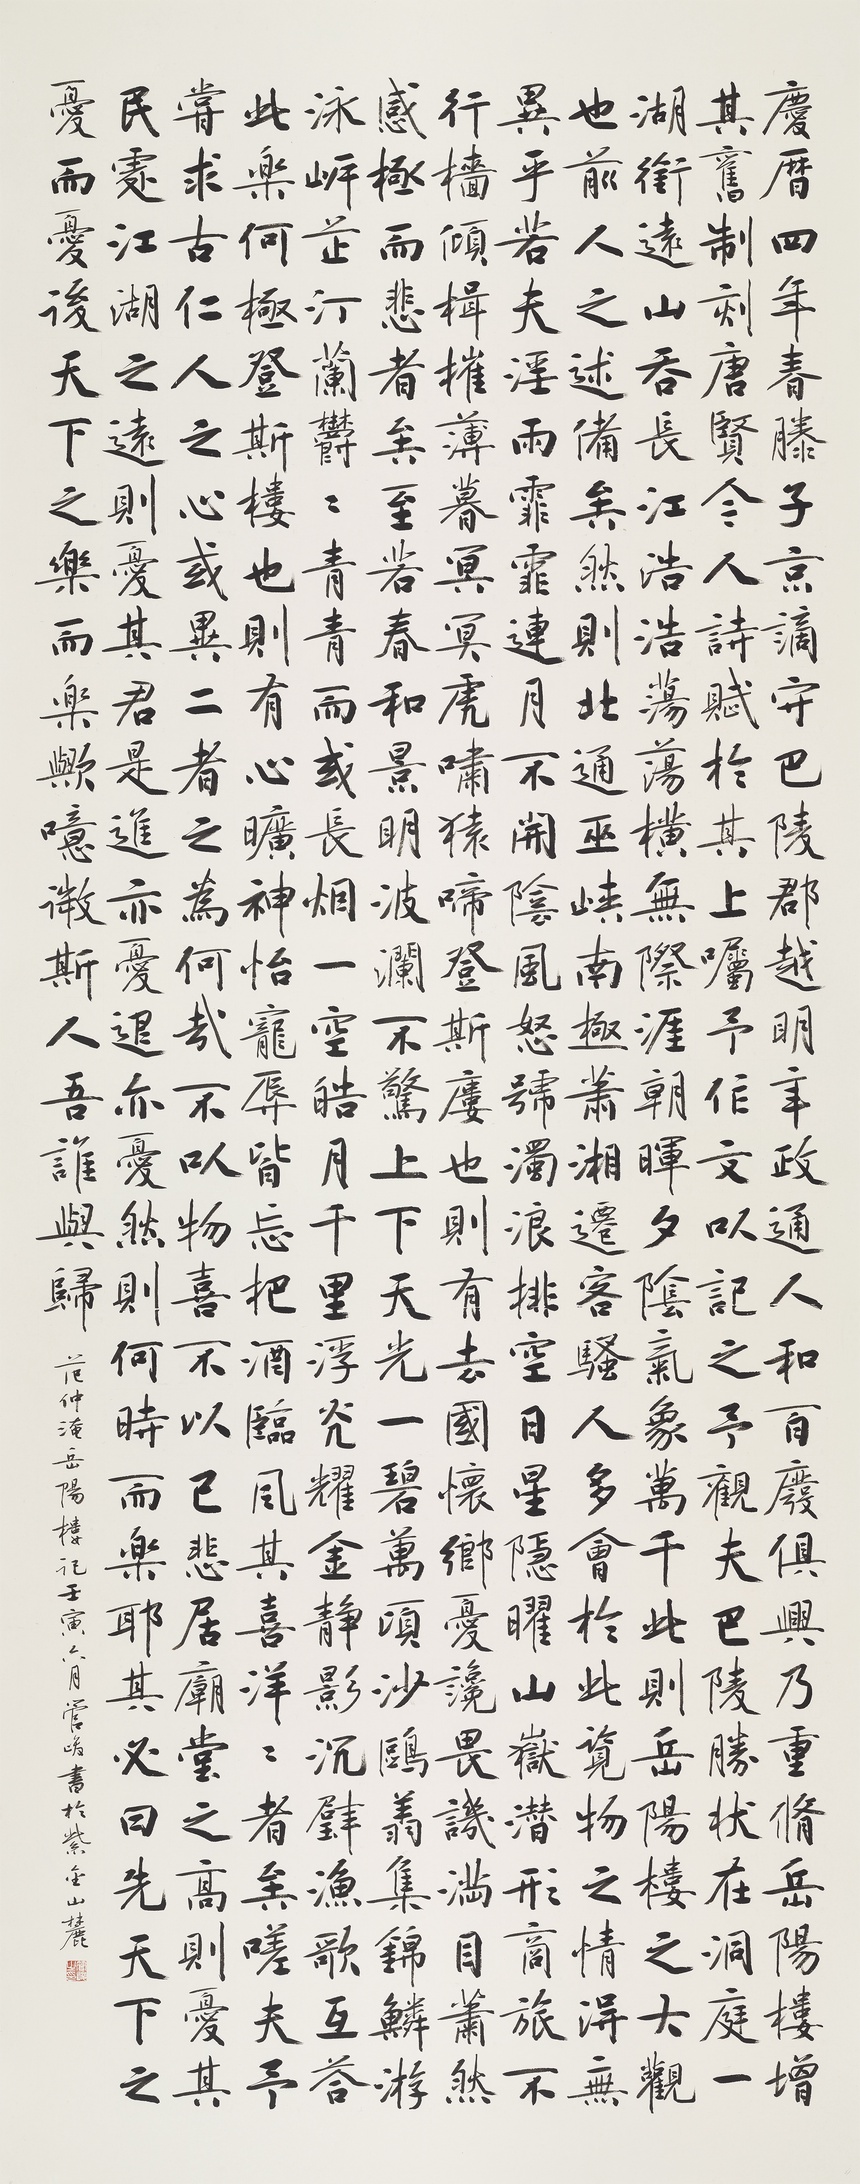 慶曆四年春滕子京謫守巴陵郡越明年政通人和百廢俱興乃重脩岳陽樓增
其舊制刻唐賢今人詩賦於其上囑予作文以記之予觀夫巴陵勝狀在洞庭一
湖銜遠山吞長江浩浩蕩蕩橫無際涯朝暉夕陰氣象萬千此則岳陽樓之大觀
也前人之述備矣然則北通巫峽南極蕭湘遷客騷人多會於此覽物之情得無
異乎若夫淫雨霏霏連月不開陰風怒號濁浪排空日星隱曜山嶽潛形商旅不
行檣傾楫摧薄暮冥冥虎嘯猿啼登斯廔也則有去國懷鄉憂讒畏譏滿目蕭然
感極而悲者矣至若春和景明波瀾不驚上下天光一碧萬頃沙鷗翔集錦鱗游
泳岸芷汀蘭鬱〻青青而或長烟一空皓月千里浮光耀金靜影沉璧漁歌互答
此樂何極登斯樓也則有心曠神怡寵辱皆忘把酒臨風其喜洋〻者矣嗟夫予
嘗求古仁人之心或異二者之為何哉不以物喜不以己悲居廟堂之高則憂其
民處江湖之遠則憂其君是進亦憂退亦憂然則何時而樂耶其必曰先天下之
憂而憂後天下之樂而樂歟噫微斯人吾誰與歸
范仲淹岳陽樓記壬寅六月管峻書於紫金山麓